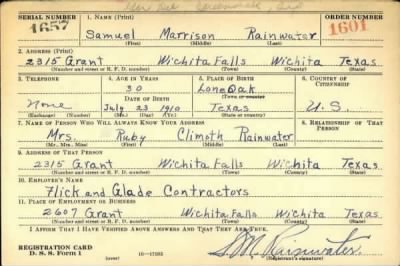 SERIAL NUMBER 1. NAME (Print) ORDER NUMBER
1657 Samuel Marrison Rainwater 1601
(First) (Middle) (Last)
2. ADDRESS (Print)
2315 Grant Wichita Falls Wichita Texas
(Number and street or R. F. D. number) (Town) (County) (State)
3. TELEPHONE 4. AGE IN YEARS 5. PLACE OF BIRTH 6. COUNTRY OF CITIZENSHIP
30 Lone Oak
DATE OF BIRTH (Town or county)
None July 23 1910 Texas U.S.
(Exchange) (Number) (Mo.) (Day) (Yr.) (State or country)
7. NAME OF PERSON WHO WILL ALWAYS KNOW YOUR ADDRESS 8. RELATIONSHIP OF THAT PERSON
Mrs. Ruby Climoth Rainwater
(Mr., Mrs., Miss) (First) (Middle) (Last)
9. ADDRESS OF THAT PERSON
2315 Grant Wichita Falls Wichita Texas
(Number and street or R. F. D. number) (Town) (County) (State)
10. EMPLOYER'S NAME
Flick and Glade Contractors
11. PLACE OF EMPLOYMENT OR BUSINESS
2607 Grant Wichita Falls Wichita Texas
(Number and street or R. F. D. number) (Town) (County) (State)
I AFFIRM THAT I HAVE VERIFIED ABOVE ANSWERS AND THAT THEY ARE TRUE.
REGISTRATION CARD
D. S. S. Form 1 (over) S M Rainwater